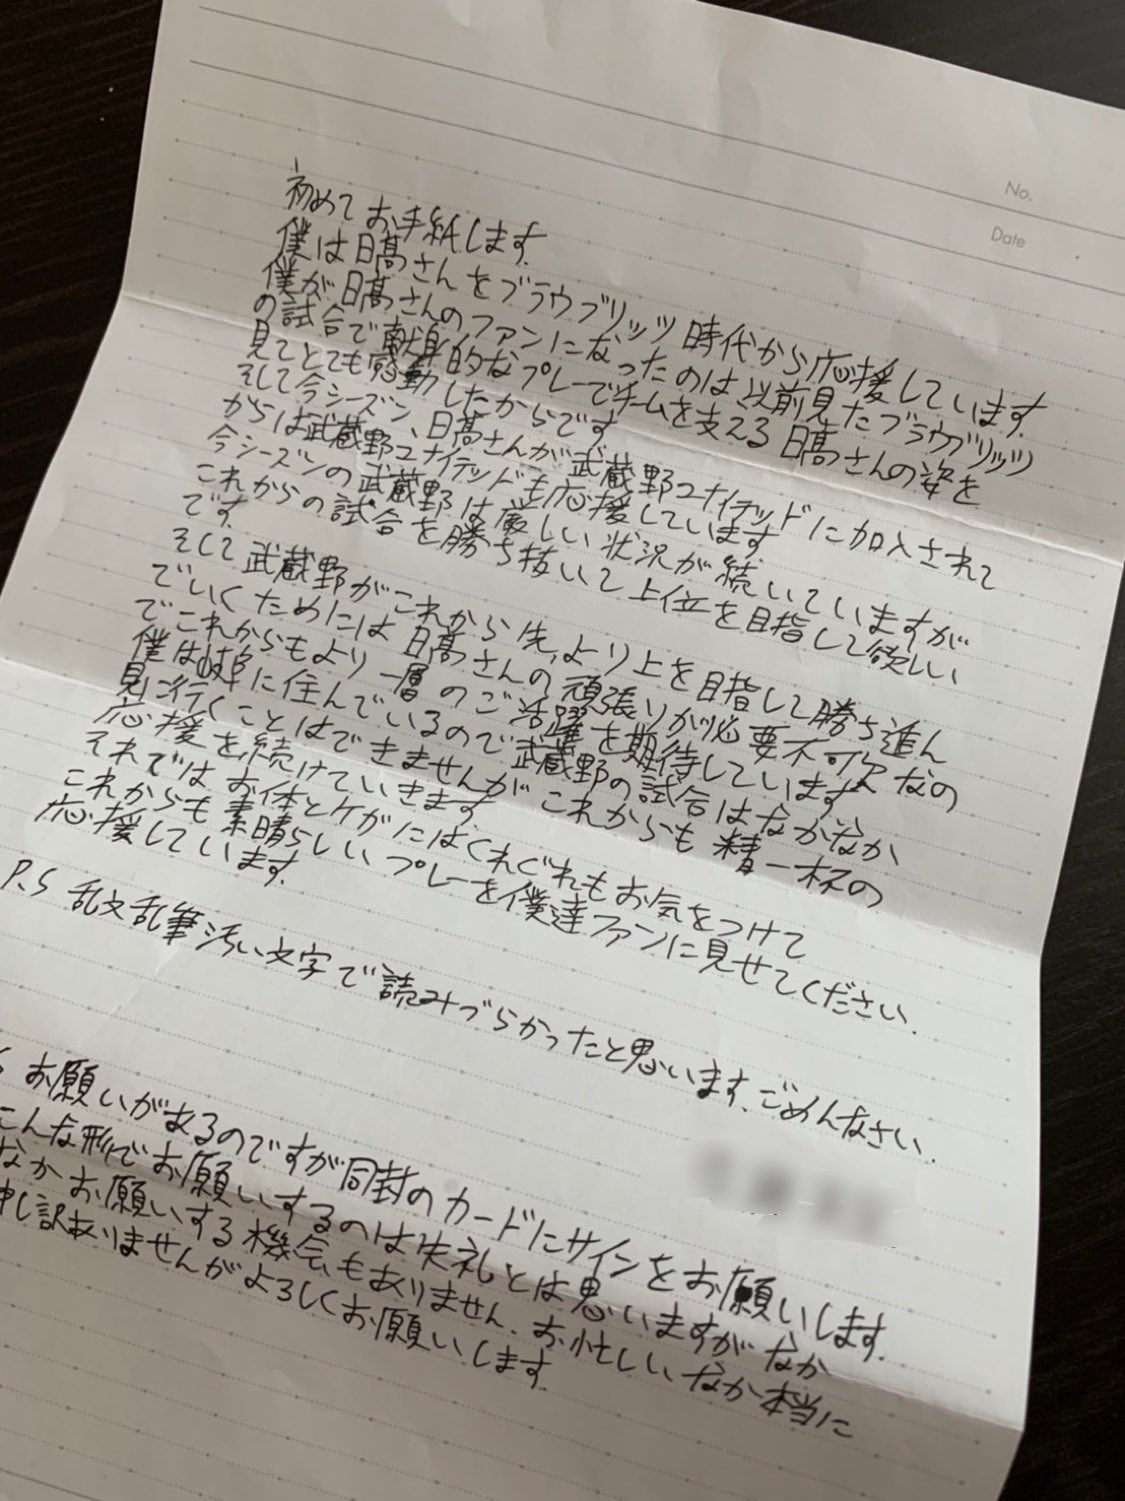 No.
Date
初めてお手紙します.
僕は日髙さんをブラウブリッツ時代から応援しています.
僕が日髙さんのファンになったのは以前見たブラウブリッツ
の試合で献身的なプレーでチームを支える日髙さんの姿を
見てとても感動したからです.
そして今シーズン、日髙さんが武蔵野ユナイテッドに加入されて
からは武蔵野ユナイテッドも応援しています
今シーズンの武蔵野は厳しい状況が続いていますが
これからの試合を勝ち抜いて上位を目指して欲しい
です.
そして武蔵野がこれから先,より上を目指して勝ち進ん
でいくためには日髙さんの頑張りが必要不可欠なの
でこれからもより一層のご活躍を期待しています
僕は岐阜に住んでいるので武蔵野の試合はなかなか
見に行くことはできませんがこれからも精一杯の
応援を続けていきます
それではお体とケガにはくれぐれもお気をつけて
これからも素晴らしいプレーを僕達ファンに見せてください.
応援しています.
P.S 乱文乱筆汚い文字で読みづらかったと思います.ごめんなさい.
S お願いがあるのですが同封のカードにサインをお願いします.
こんな形でお願いするのは失礼とは思いますがなか
なかお願いする機会もありません.お忙しいなか本当に
申し訳ありませんがよろしくお願いします.